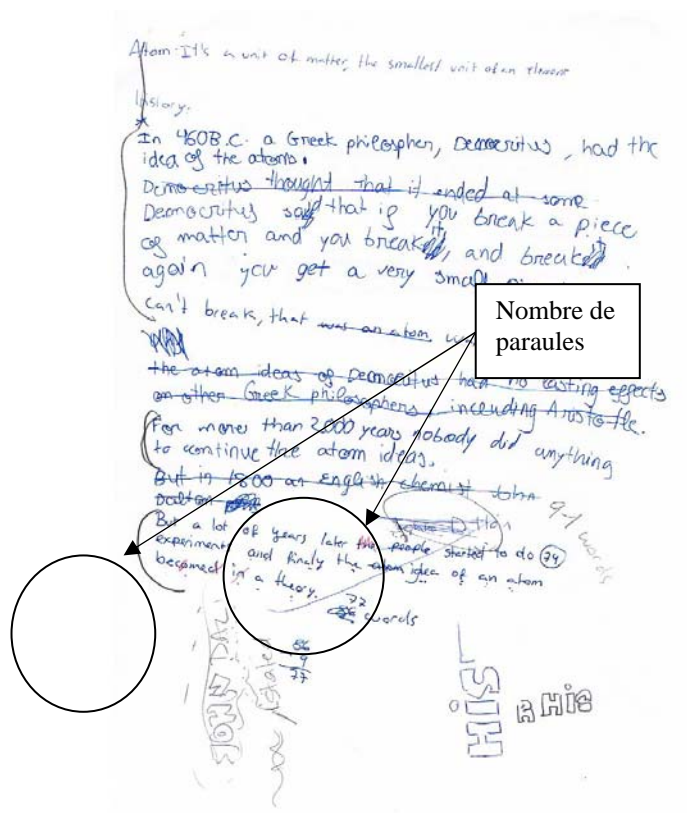 Atom: It's a unit of matter, the smallest unit of an element
History.
In 460 B.C. a Greek philosopher, Democritus, had the
idea of the atoms.
Democritus thought that it ended at some
Democritus said that if you break a piece
of matter and you break it, and break it
again you get a very small
can't break, that was an atom
Nombre de
paraules
the atom ideas of Democritus had no lasting effects
on other Greek philosophers, including Aristotle.
For more than 2000 years nobody did anything
to continue the atom ideas.
But in 1800 an English chemist John
Dalton
But a lot of years later the people started to do 74
experiments and finaly the atom idea of an atom
becomed in a theory.
91 words
77
86 words
86
9
77
HIS
R HIS